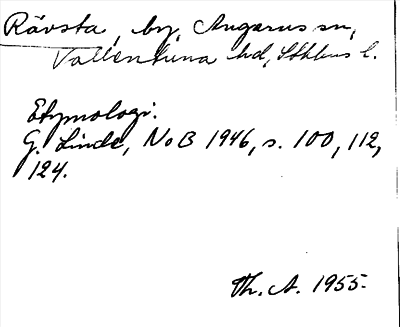 Rävsta, by, Angarns sn,
Vallentuna hd, Sthlms l.
Etymologi:
G. Linde, NoB 1946, s. 100, 112,
124.
Th. A. 1955.